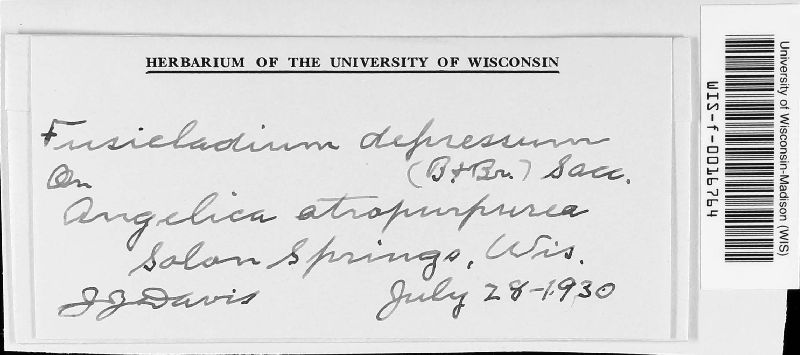 HERBARIUM OF THE UNIVERSITY OF WISCONSIN
Fusicladium depressum
(B+Br.) Sacc.
On
Angelica atropurpurea
Solon Springs, Wis.
J J Davis July 28-1930
University of Wisconsin-Madison (WIS)
WIS-f-0016764